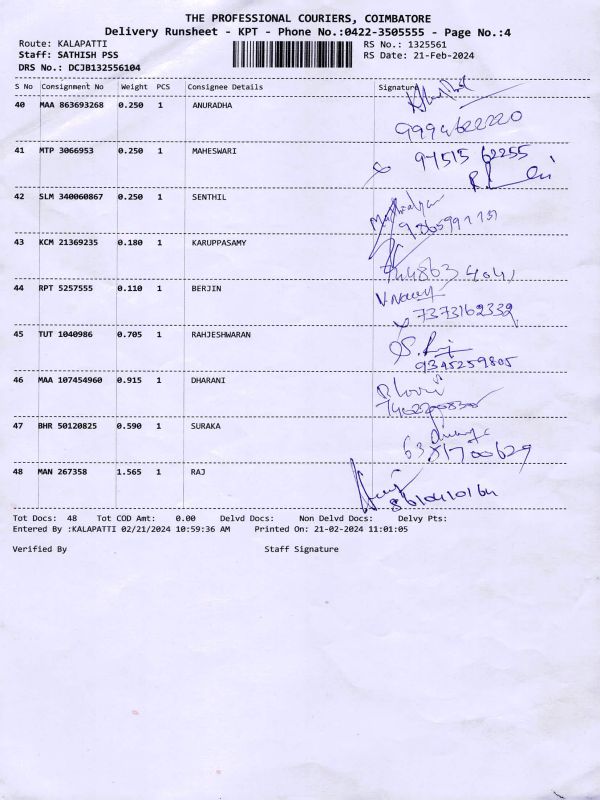 THE PROFESSIONAL COURIERS, COIMBATORE
Delivery Runsheet - KPT - Phone No.:0422-3505555 - Page No.:4
Route: KALAPATTI RS No.: 1325561
Staff: SATHISH PSS RS Date: 21-Feb-2024
DRS No.: DCJB132556104
S No Consignment No Weight PCS Consignee Details Signature
40 MAA 863693268 0.250 1 ANURADHA
41 MTP 3066953 0.250 1 MAHESWARI
97515 62255
42 SLM 340060867 0.250 1 SENTHIL
43 KCM 21369235 0.180 1 KARUPPASAMY
44 RPT 5257555 0.110 1 BERJIN
7373162332
45 TUT 1040986 0.705 1 RAHJESHWARAN
9345259805
46 MAA 107454960 0.915 1 DHARANI
47 BHR 50120825 0.590 1 SURAKA
6381700629
48 MAN 267358 1.565 1 RAJ
Tot Docs: 48 Tot COD Amt: 0.00 Delvd Docs: Non Delvd Docs: Delvy Pts:
Entered By :KALAPATTI 02/21/2024 10:59:36 AM Printed On: 21-02-2024 11:01:05
Verified By Staff Signature